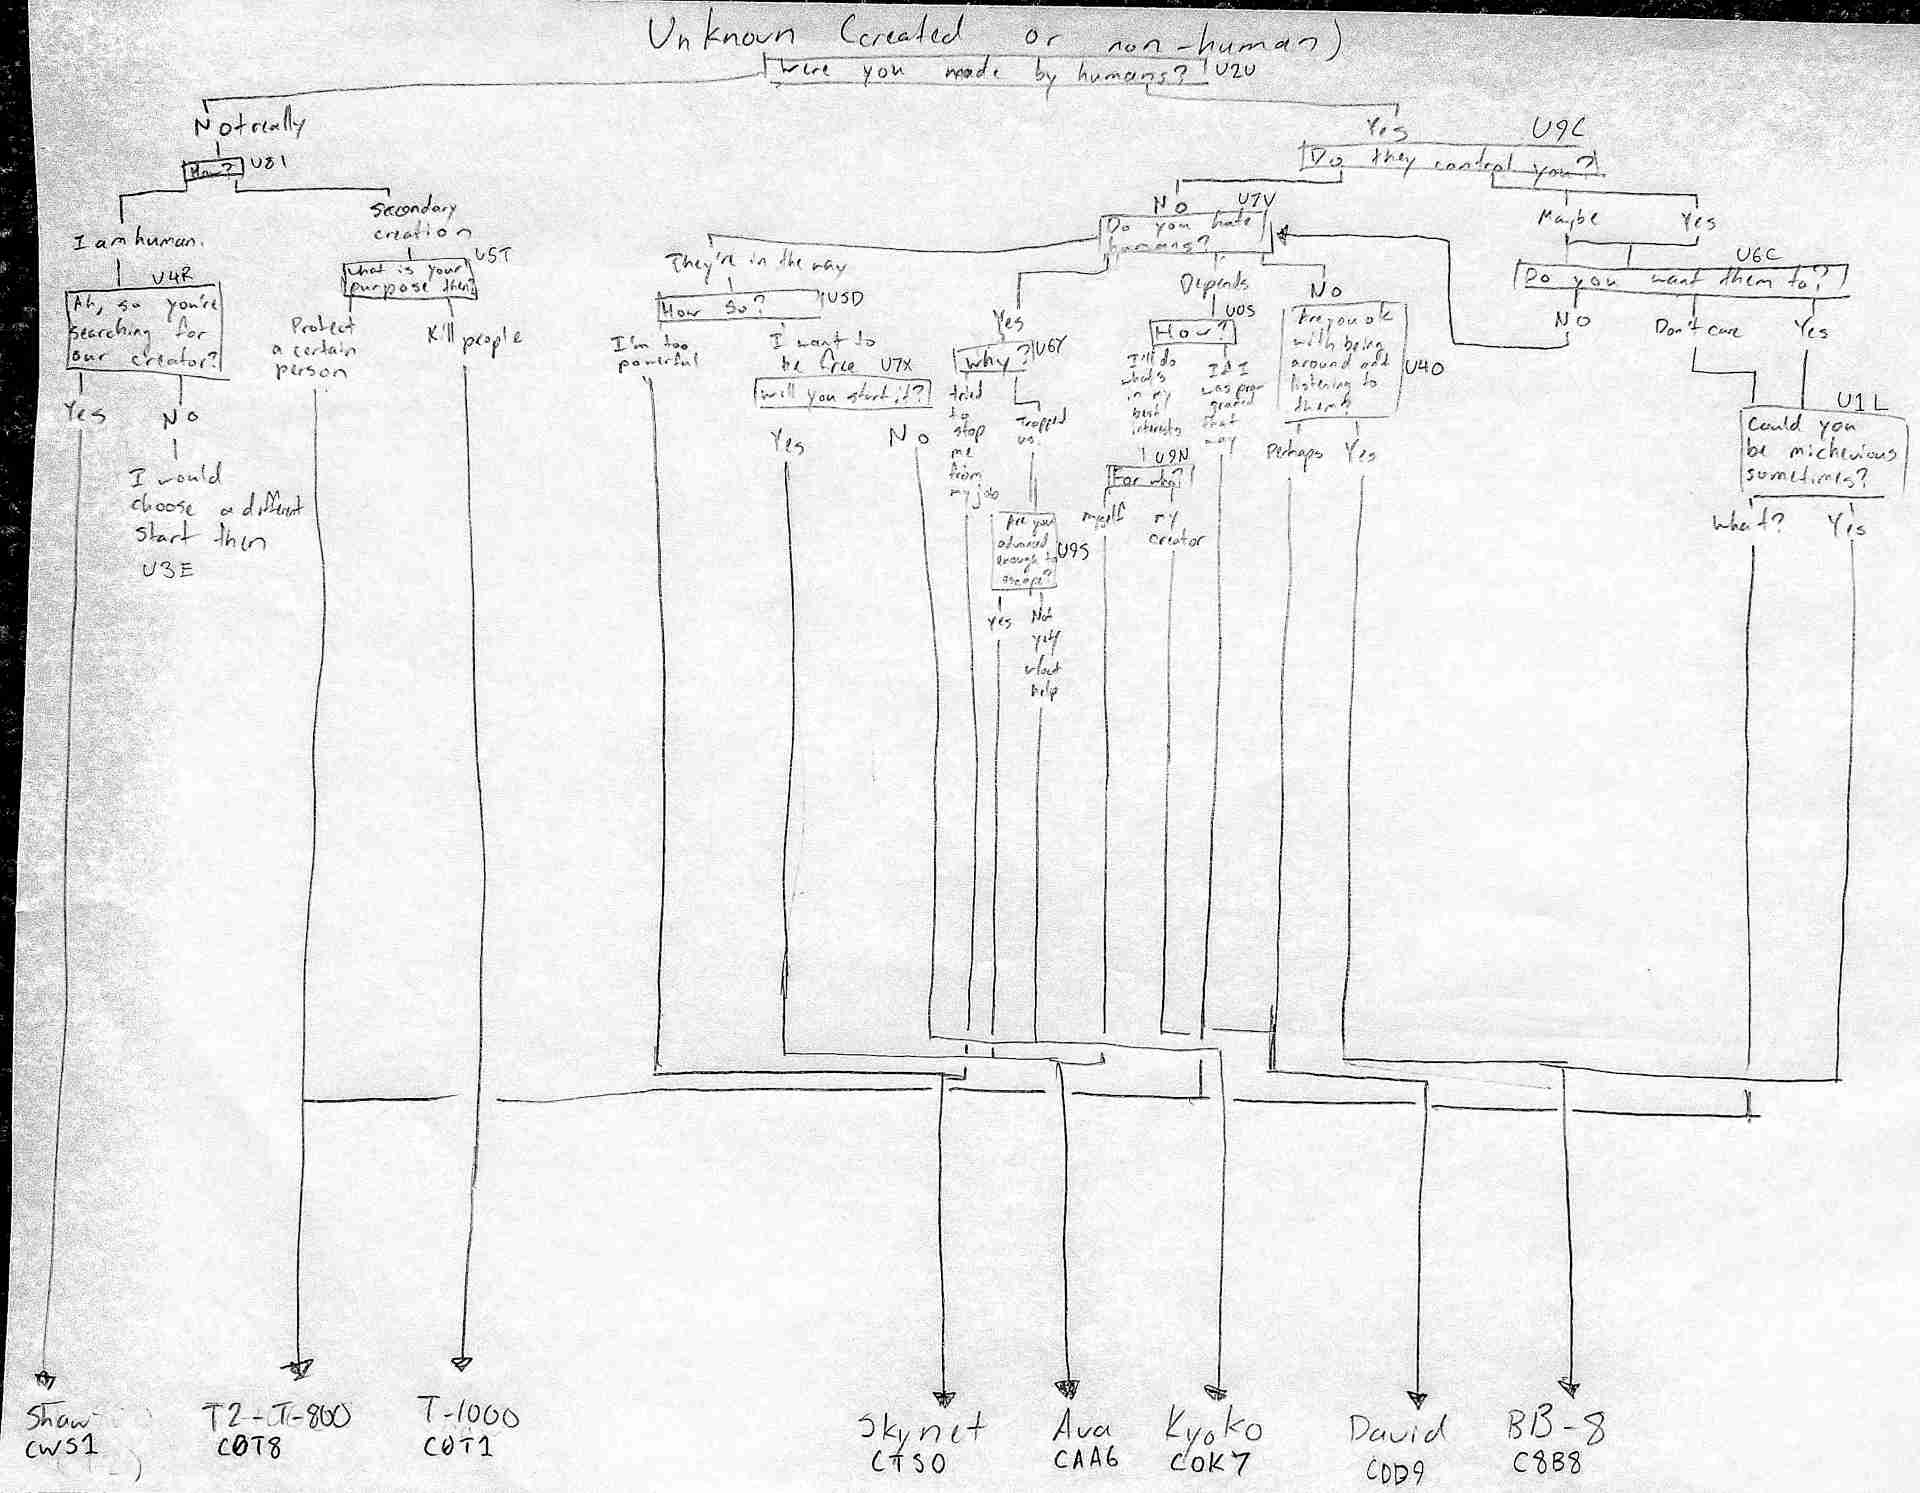 Unknown (created or non-human)
Were you made by humans? U2U
Not really
How? U81
I am human.
U4R
Ah, so you're
searching for
our creator?
Yes
No
I would
choose a different
start then
U3E
Secondary
creation
U5T
What is your
purpose then?
Protect
a certain
person
Kill people
Yes
U9C
Do they control you?
No
U7V
Do you hate
humans?
They're in the way
How so? U5D
I'm too
powerful
I want to
be free U7X
Will you start it?
Yes
No
Yes
Why? U6Y
tried
to
stop
me
from
my job
Trapped
us.
Are you
advanced
enough to
escape?
U9S
Yes
Not
yet/
w/out
help
Depends
U0S
How?
I'll do
what's
in my
best
interests
If I
was pro-
gramed
that
way
U9N
For who?
myself
my
creator
No
Are you ok
with being
around and
listening to
them?
U40
Perhaps
Yes
Maybe
Yes
U6C
Do you want them to?
No
Don't care
Yes
U1L
Could you
be michevious
sometimes?
What?
Yes
Shaw
CWS1
T2-T-800
C0T8
T-1000
C0T1
Skynet
CTS0
Ava
CAA6
Kyoko
COK7
David
CDD9
BB-8
C8B8